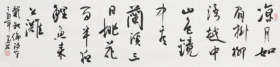 涼月如
眉掛柳
灣越中
山色鏡
中看
蘭溪三
日桃花
雨半夜
鯉魚來
上灘